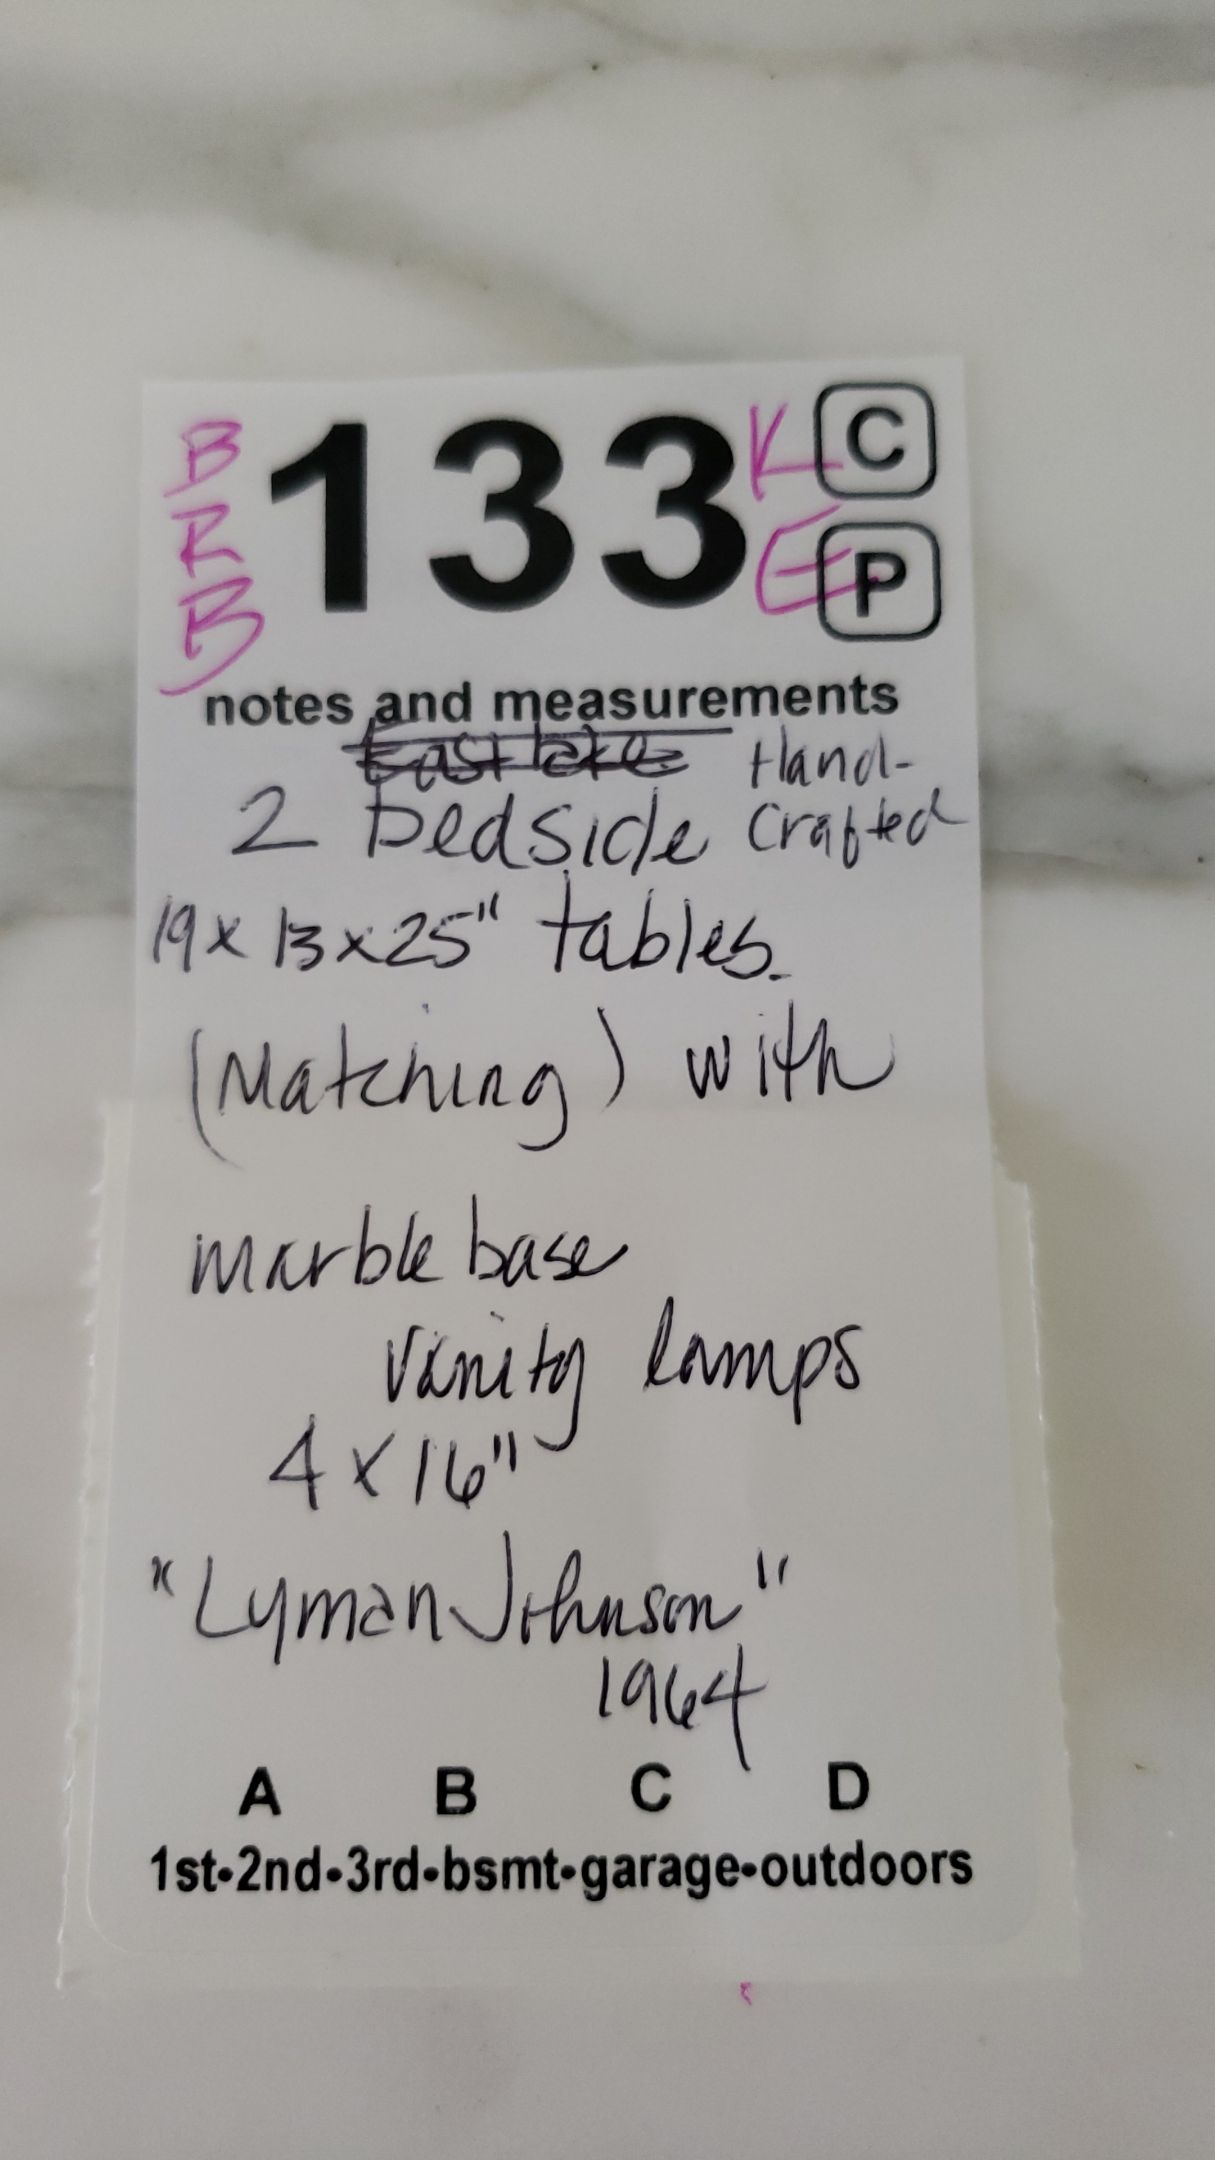 B 133 K C
R
B E P
notes and measurements
Eastlake Hand-
2 bedside Crafted
19 x 13 x 25" tables.
(Matching) with
marble base
vanity lamps
4 x 16"
"Lyman Johnson"
1964
A B C D
1st•2nd•3rd•bsmt•garage•outdoors